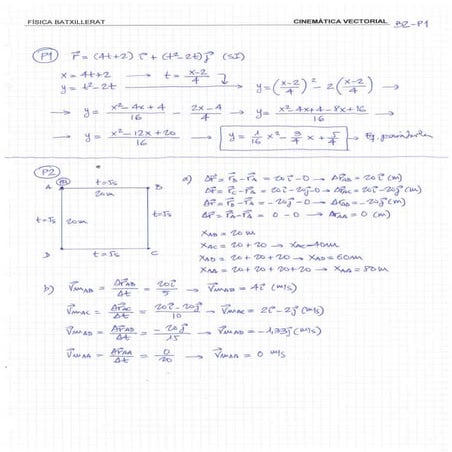 FÍSICA BATXILLERAT CINEMÀTICA VECTORIAL B2-P1
P1 r⃗ = (4t+2) i⃗ + (t²-2t) j⃗ (SI)
x = 4t+2 → t = x-2/4
y = t²-2t y = (x-2/4)² - 2(x-2/4) →
→ y = x²-4x+4/16 - 2x-4/4 → y = x²-4x+4-8x+16/16 →
→ y = x²-12x+20/16 → y = 1/16 x² - 3/4 x + 5/4 → Eq.
P2
A t=5s B
20m
t=5s 20m t=5s
D t=5s C
a) Δr⃗ = r⃗B - r⃗A = 20i⃗ - 0 → Δr⃗AB = 20i⃗ (m)
Δr⃗ = r⃗C - r⃗A = 20i⃗-20j⃗-0 → Δr⃗AC = 20i⃗-20j⃗ (m)
Δr⃗ = r⃗D - r⃗A = -20j⃗-0 → Δr⃗AD = -20j⃗ (m)
Δr⃗ = r⃗A - r⃗A = 0 - 0 → Δr⃗AA = 0 (m)
XAB = 20 m
XAC = 20 + 20 → XAC = 40m
XAD = 20 + 20 + 20 → XAD = 60m
XAA = 20 + 20 + 20 + 20 → XAA = 80m
b) V⃗mAB = Δr⃗AB/Δt = 20i⃗/5 → V⃗mAB = 4i⃗ (m/s)
V⃗mAC = Δr⃗AC/Δt = 20i⃗-20j⃗/10 → V⃗mAC = 2i⃗-2j⃗ (m/s)
V⃗mAD = Δr⃗AD/Δt = -20j⃗/15 → V⃗mAD = -1,33j⃗ (m/s)
V⃗mAA = Δr⃗AA/Δt = 0/20 → V⃗mAA = 0 m/s